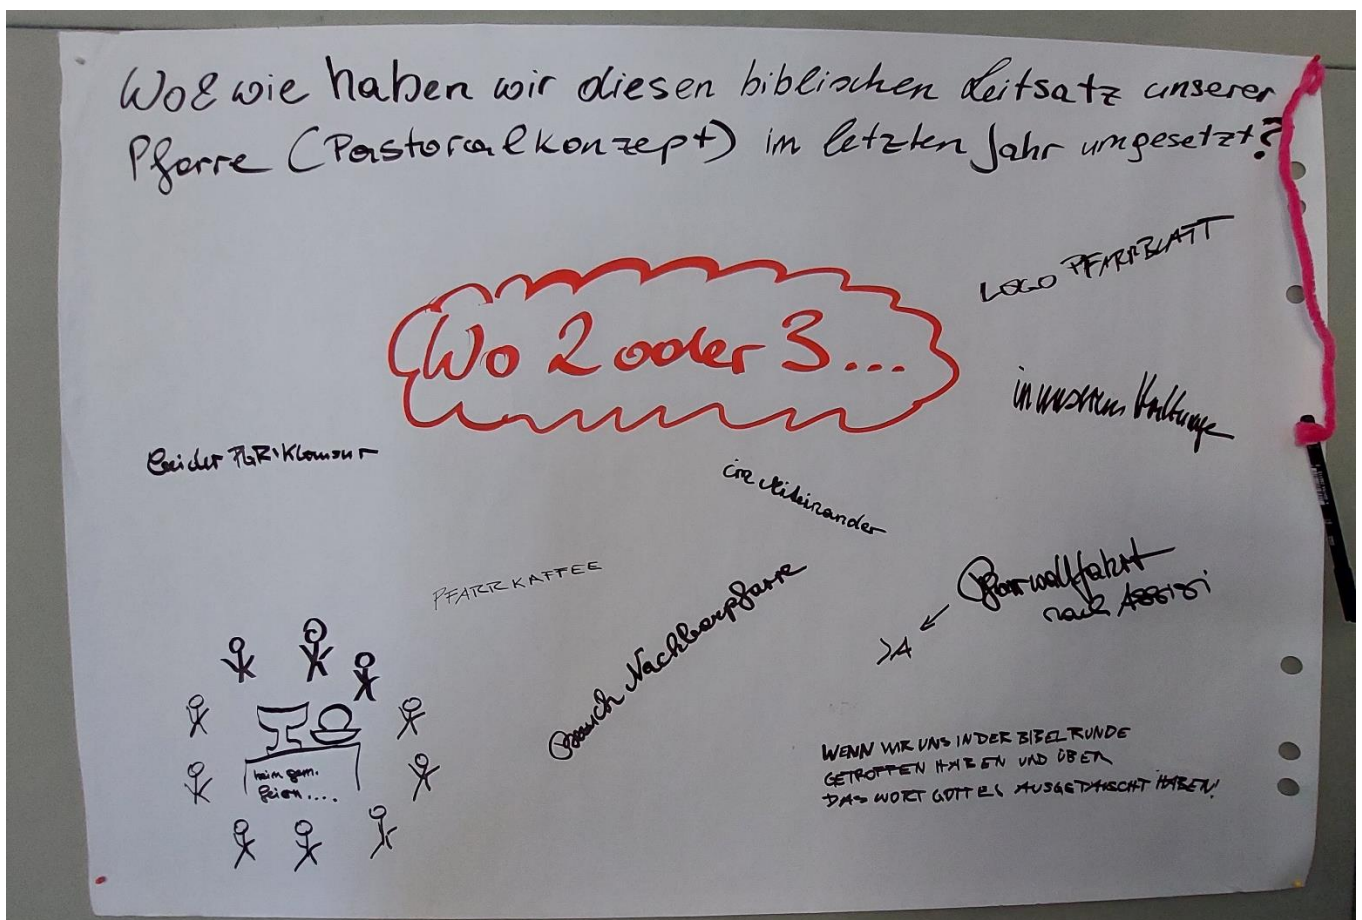 Wo & wie haben wir diesen biblischen Leitsatz unserer
Pfarre (Pastoralkonzept) im letzten Jahr umgesetzt?
LOGO PFARRBLATT
Wo 2 oder 3...
in unserem
bei der PGR-Klausur
im Miteinander
PFARRKAFFEE
Besuch Nachbarpfarre
Pfarrwallfahrt
nach Assisi
JA
beim gem.
feiern....
WENN WIR UNS IN DER BIBELRUNDE
GETROFFEN HABEN UND ÜBER
DAS WORT GOTTES AUSGETAUSCHT HABEN!